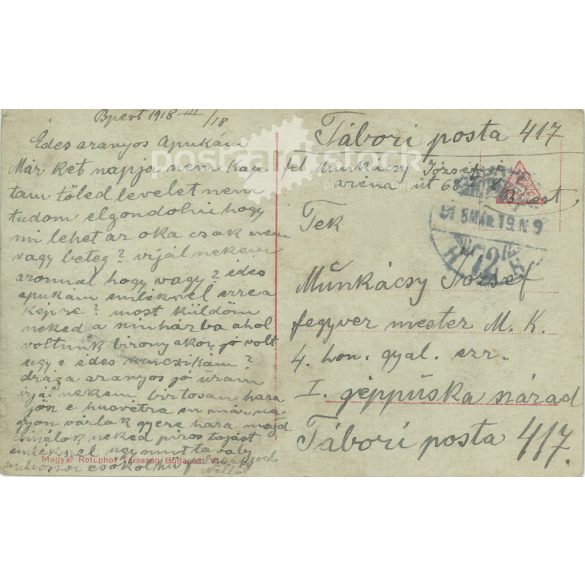 Bpest 1918 III/18
Édes aranyos Apukám
Már két napja nem kap
tam töled levelet nem
tudom elgondolni hogy
mi lehet az oka csak nem
vagy beteg? irjál nekem
azonnal hogy vagy? édes
apukám emlékszel erre a
képre? most küldöm
neked a szinházba ahol
voltunk bizony akor jó volt
ugye édes
drága aranyos jó uram
irjál nekem biztosan haza
jön e husvétra én már na
gyon várlak gyere haza majd
neked piros tojást
ugy mint tavaly
csókol hű
Magyar Rotophot Társaság Budapest VI.
Tábori posta 417
fel Munkácsy József
aréna út 68
Bpest.
Tek
Munkácsy József
fegyver mester M. K.
4. hon. gyal. ezr.
I. géppuska század
Tábori posta 417.
postcards
STOCK
918 MÁR 19 N 9
72